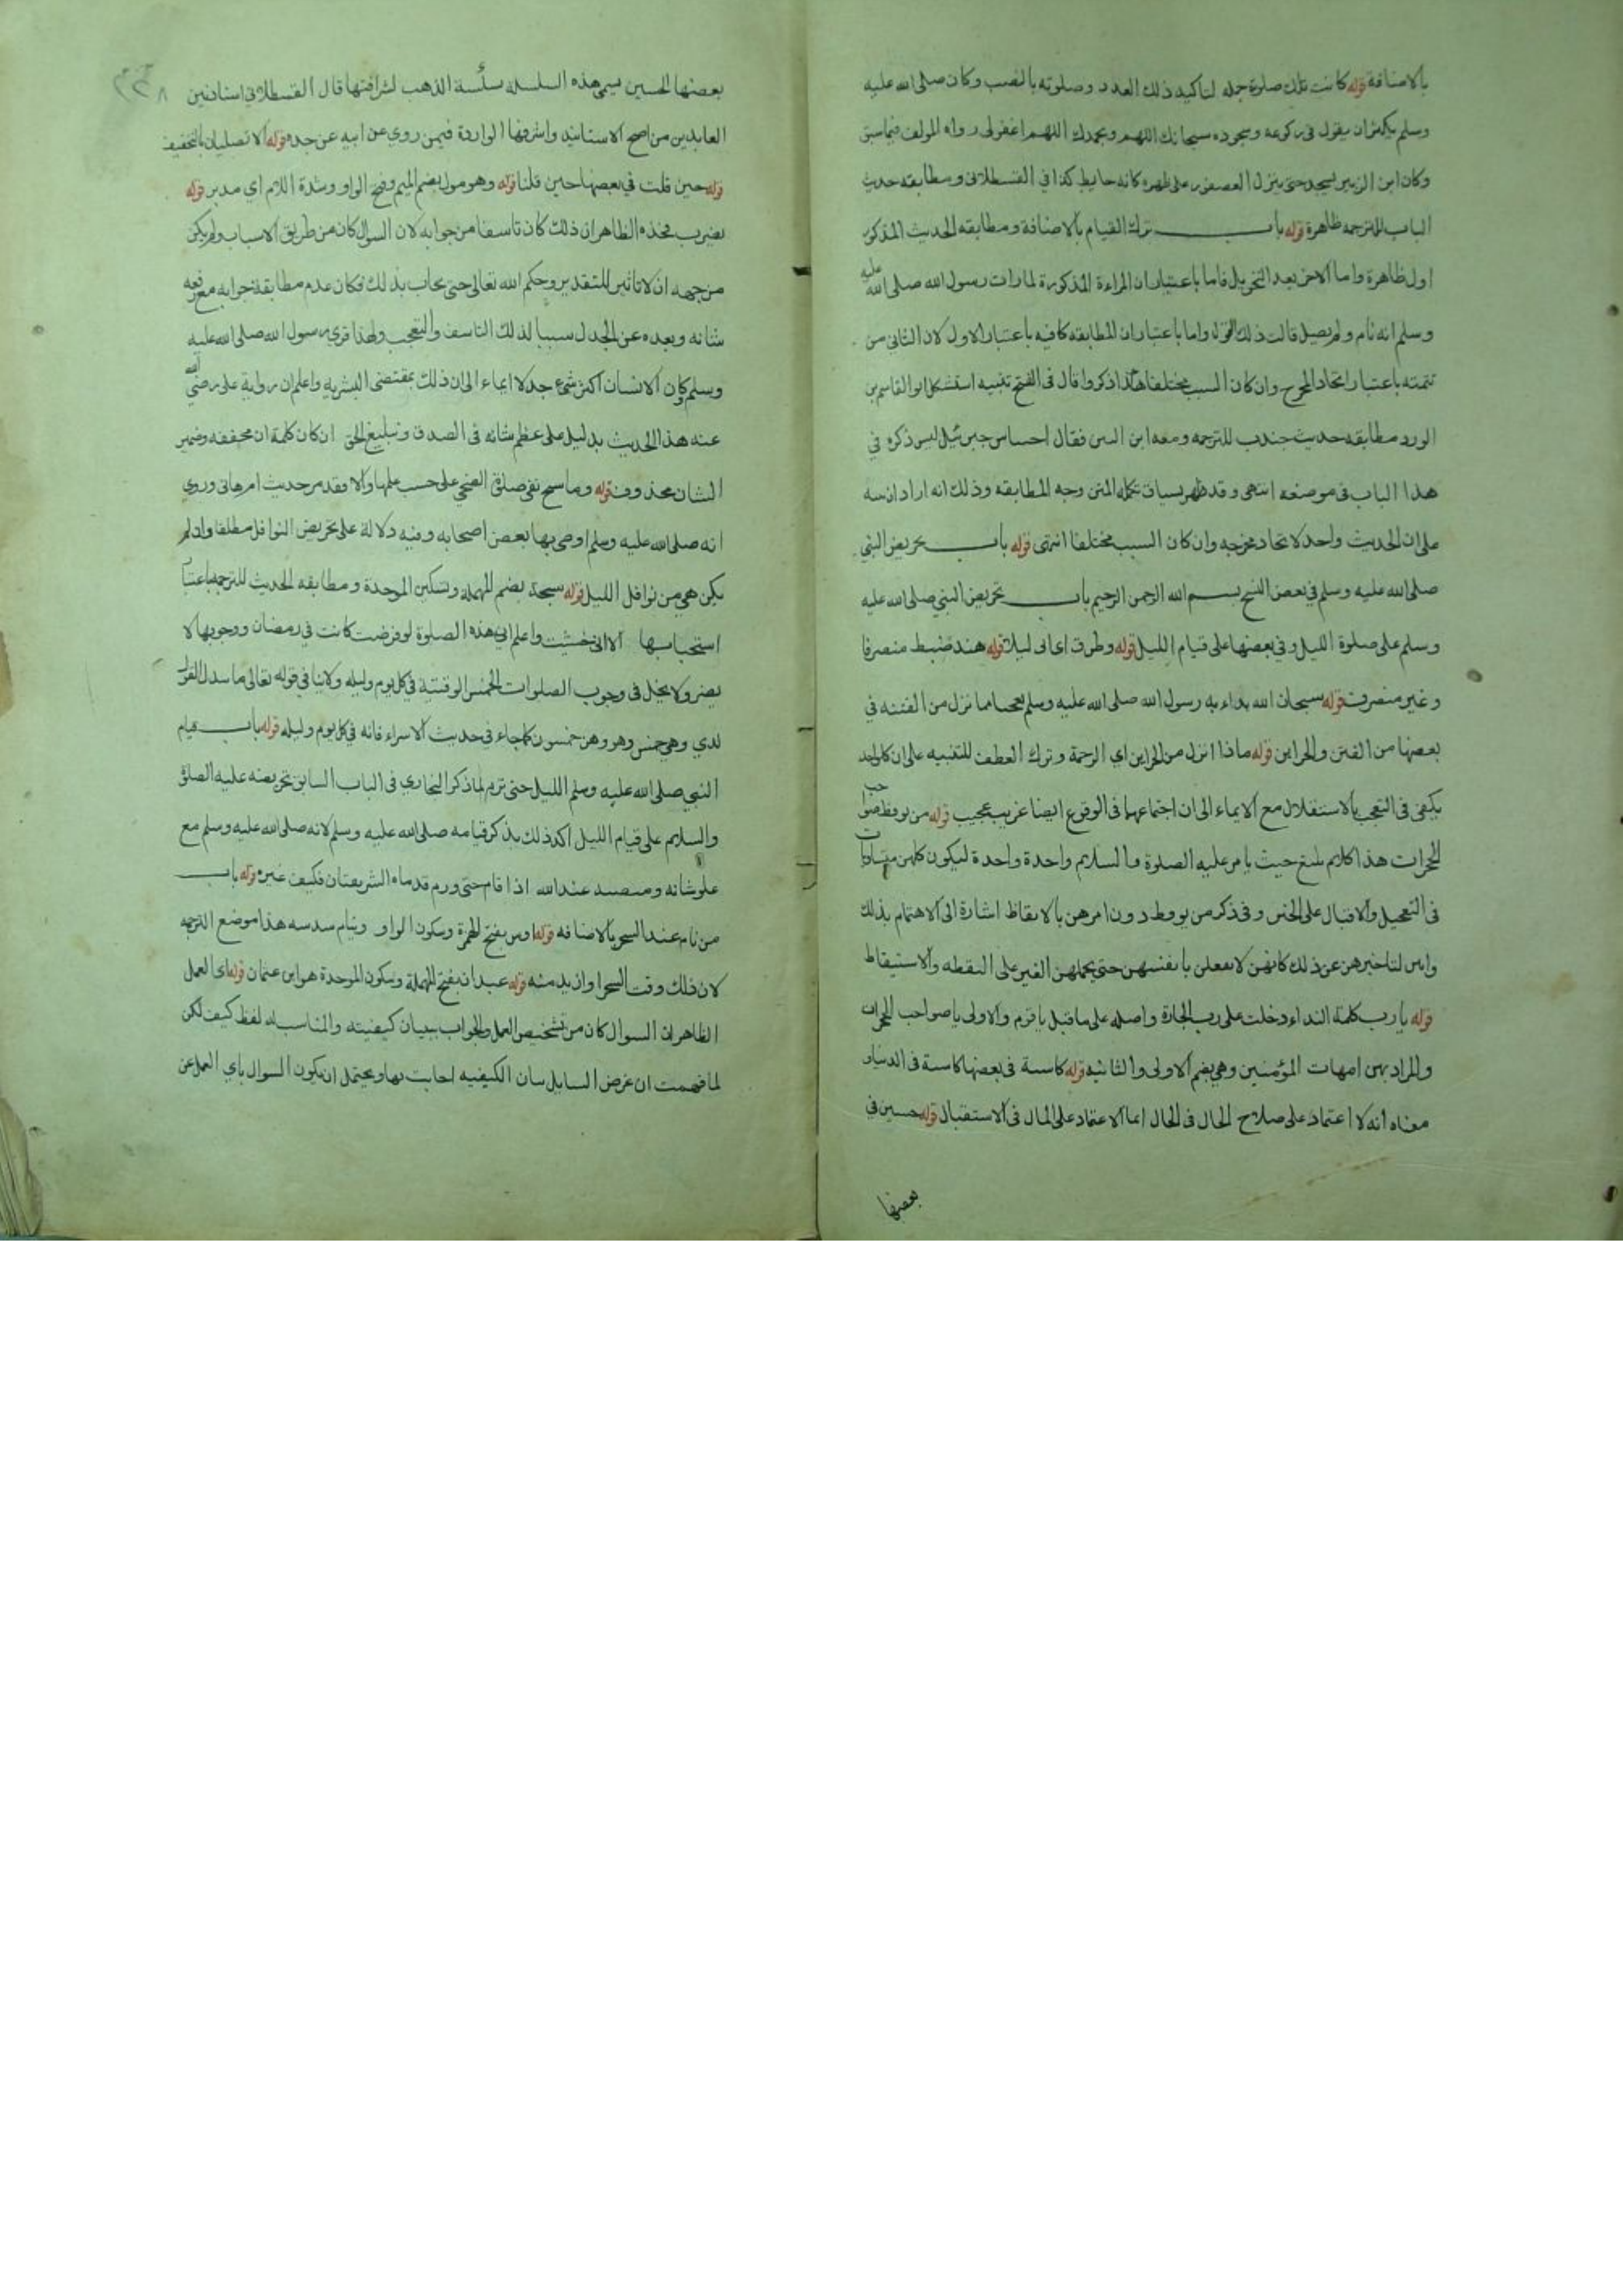 بالاضافة قوله كانت تلك صلوة جمله لتاكيد ذلك العدد وصلوته بالنصب وكان صلى الله عليه
وسلم يكثر ان يقول فى ركوعه وسجوده سبحانك اللهم وبحمدك اللهم اغفر لى رواه المولف فيما سبق
وكان ابن الزبير يسجد حتى ينزل العصفور على ظهره كانه حايط كذا في القسطلانى ومطابقه حديث
الباب للترجمه ظاهرة قوله باب ترك القيام بالاضافة ومطابقه الحديث المذكور
اول ظاهرة واما الاخر بعد التحويل فاما باعتبار ان المراءة المذكورة لما رات رسول الله صلى الله عليه
وسلم انه نام ولم يصل قالت ذلك القول واما باعتبار ان المطابقه كافيه باعتبار الاول لان الثانى من
تتمته باعتبار اتحاد المخرج وان كان السبب مختلفا هكذا ذكروا قال فى الفتح تنبيه استشكل ابو القاسم بن
الورد مطابقه حديث جندب للترجمه ومعه ابن التين فقال احتباس جبرئيل ليس ذكره في
هذا الباب فى موضعه انتهى وقد ظهر بسياق تكمله المتن وجه المطابقه وذلك انه اراد ان ينبه
على ان الحديث واحد لاتحاد مخرجه وان كان السبب مختلفا انتهى قوله باب تحريض النبي
صلى الله عليه وسلم في بعض النسخ بسم الله الرحمن الرحيم باب تحريض النبي صلى الله عليه
وسلم على صلوة الليل وفي بعضها على قيام الليل قوله وطرق اى اتى ليلا قوله هند ضبط منصرفا
وغير منصرف قوله سبحان الله بداء به رسول الله صلى الله عليه وسلم تعجبا مما نزل من الفتنه في
بعضها من الفتن والخزاين قوله ماذا انزل من الخزاين اي الرحمة وترك العطف للتنبيه على ان كل واحد
يكفى فى التعجب بالاستقلال مع الايماء الى ان اجتماعهما فى الوقوع ايضا غريب عجيب قوله من يوقظ صواحب
الحجرات هذا كلام بليغ حيث يامر عليه الصلوة والسلام واحدة واحدة ليكون كلهن متساويات
فى التعجيل والاقبال على الخير وفى ذكر من يوقظ دون امرهن بالايقاظ اشارة الى الاهتمام بذلك
وايس لتاخيرهن عن ذلك كانهن لا يفعلن بانفسهن حتى يحملهن الغير على اليقظه والاستيقاظ
قوله يا رب كلمة النداء دخلت على رب الجارة واصله على ما قيل يا قوم والاولى يا صواحب الحجرات
والمراد بهن امهات المؤمنين وهى بضم الاولى والثانيه قوله كاسية فى بعضها كاسية فى الدنيا و
معناه انه لا اعتماد على صلاح الحال فى الحال انما الاعتماد على المال فى الاستقبال قوله حسين في
بعضها
بعضها الحسين يسمى هذه السلسله سلسة الذهب لشرافتها قال القسطلانى اسناد زين
العابدين من اصح الاسانيد واشرفها الواردة فيمن روي عن ابيه عن جده قوله الا تصليان بالتخفيف
قوله حين قلت في بعضها حين قلنا قوله وهو مول بضم الميم وفتح الواو وشدة اللام اي مدبر قوله
يضرب فخذه الظاهر ان ذلك كان تاسفا من جوابه لان السوال كان من طريق الاسباب ولم يكن
من جهه ان لا تاثير للتقدير وحكم الله تعالى حتى يجاب بذلك فكان عدم مطابقة جوابه مع رفعه
شانه وبعده عن الجدل سببا لذلك التاسف والتعجب ولهذا قرى رسول الله صلى الله عليه
وسلم وكان الانسان اكثر شئ جدلا ايماء الى ان ذلك بمقتضى البشريه واعلم ان رواية على رضى الله
عنه هذا الحديث يدل على عظم شانه فى الصدق وتبليغ الحق ان كان كلمة ان مخففه وضمير
الشان محذوف قوله وما سبح نفى صلوة الضحى على حسب علمها والا فقد مر حديث ام هانى وروي
انه صلى الله عليه وسلم اوصى بها بعض اصحابه وفيه دلالة على تحريض النوافل مطلقا وان لم
يكن هى من نوافل الليل قوله سبحة بضم المهملة وتسكين الموحدة ومطابقه الحديث للترجمه باعتبار
استحبابها الا انى خشيت واعلم ان هذه الصلوة لو فرضت كانت في رمضان ووجوبها لا
يضر ولا يخل فى وجوب الصلوات الخمس الوقتية في كل يوم وليله ولا ينافي قوله تعالى ما يبدل القول
لدي وهى خمس وهن خمسون كما جاء فى حديث الاسراء فانه في كل يوم وليله قوله باب قيام
النبي صلى الله عليه وسلم الليل حتى ترم لما ذكر البخاري فى الباب السابق تحريضه عليه الصلوة
والسلام على قيام الليل اكد ذلك بذكر قيامه صلى الله عليه وسلم لانه صلى الله عليه وسلم مع
علو شانه ومنصبه عند الله اذا قام حتى ورم قدماه الشريفتان فكيف غيره قوله باب
من نام عند السحر بالاضافه قوله اوس بفتح الهمزة وسكون الواو وينام سدسه هذا موضع الترجمه
لان ذلك وقت السحر او ازيد منه قوله عبدان بفتح المهملة وسكون الموحدة هو ابن عثمان قوله اى العمل
الظاهر ان السوال كان من تشخيص العمل والجواب ببيان كيفيته والمناسب له لفظ كيف لكن
لما فهمت ان غرض السايل بيان الكيفيه اجابت بها ويحتمل ان يكون السوال باي العمل عن